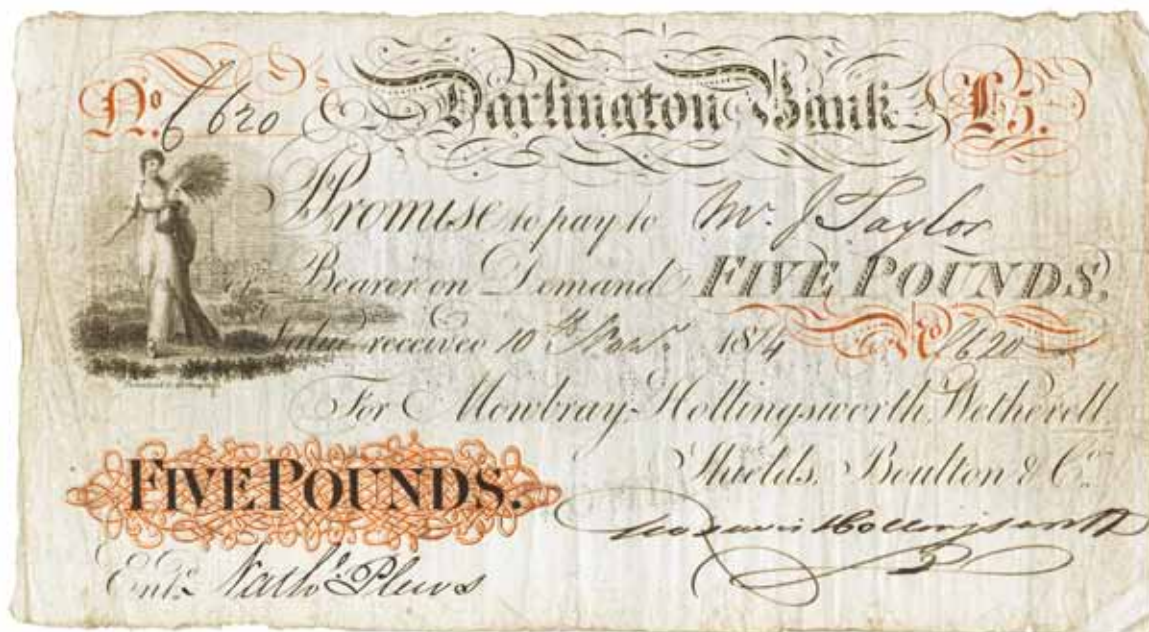 No. 6620 Darlington Bank £5.
Promise to pay to Mr. J Taylor
or Bearer on Demand FIVE POUNDS.
Value received 10th 1814 No 6620
For Mowbray, Hollingsworth, Wetherell,
Shields, Boulton & Co.
FIVE POUNDS.
Hollingsworth
Entd. Plews